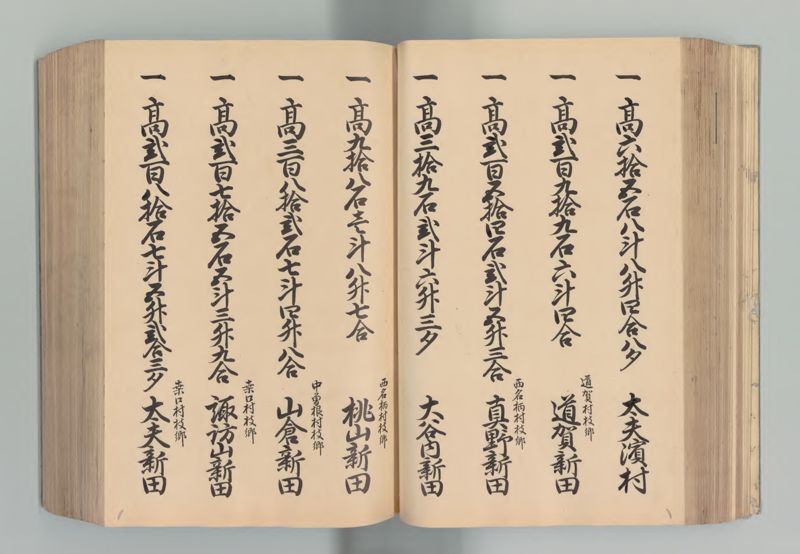 一 高六拾五石八斗八升四合八夕 太夫濱村
道賀村枝郷
一 高弐百九拾九石六斗四合 道賀新田
西名柄村枝郷
一 高弐百五拾四石弐斗五升三合 真野新田
一 高三拾九石弐斗六升三夕 大谷内新田
西名柄村枝郷
一 高九拾八石壱斗八升七合 桃山新田
中曽根村枝郷
一 高三百八拾弐石七斗四升八合 山倉新田
楽口村枝郷
一 高弐百七拾五石五斗三升九合 諏訪山新田
楽口村枝郷
一 高弐百八拾石七斗五升弐合三夕 太夫新田